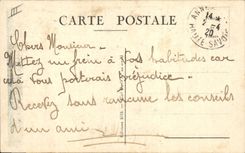 III
CARTE POSTALE
14 *
-4
20
HAUTE-SAVOIE
Chers Monsieur.
Mettez un frein à vos habitudes car
cela vous porterais préjudice.
Recevez sans rancune les conseils
d'un ami